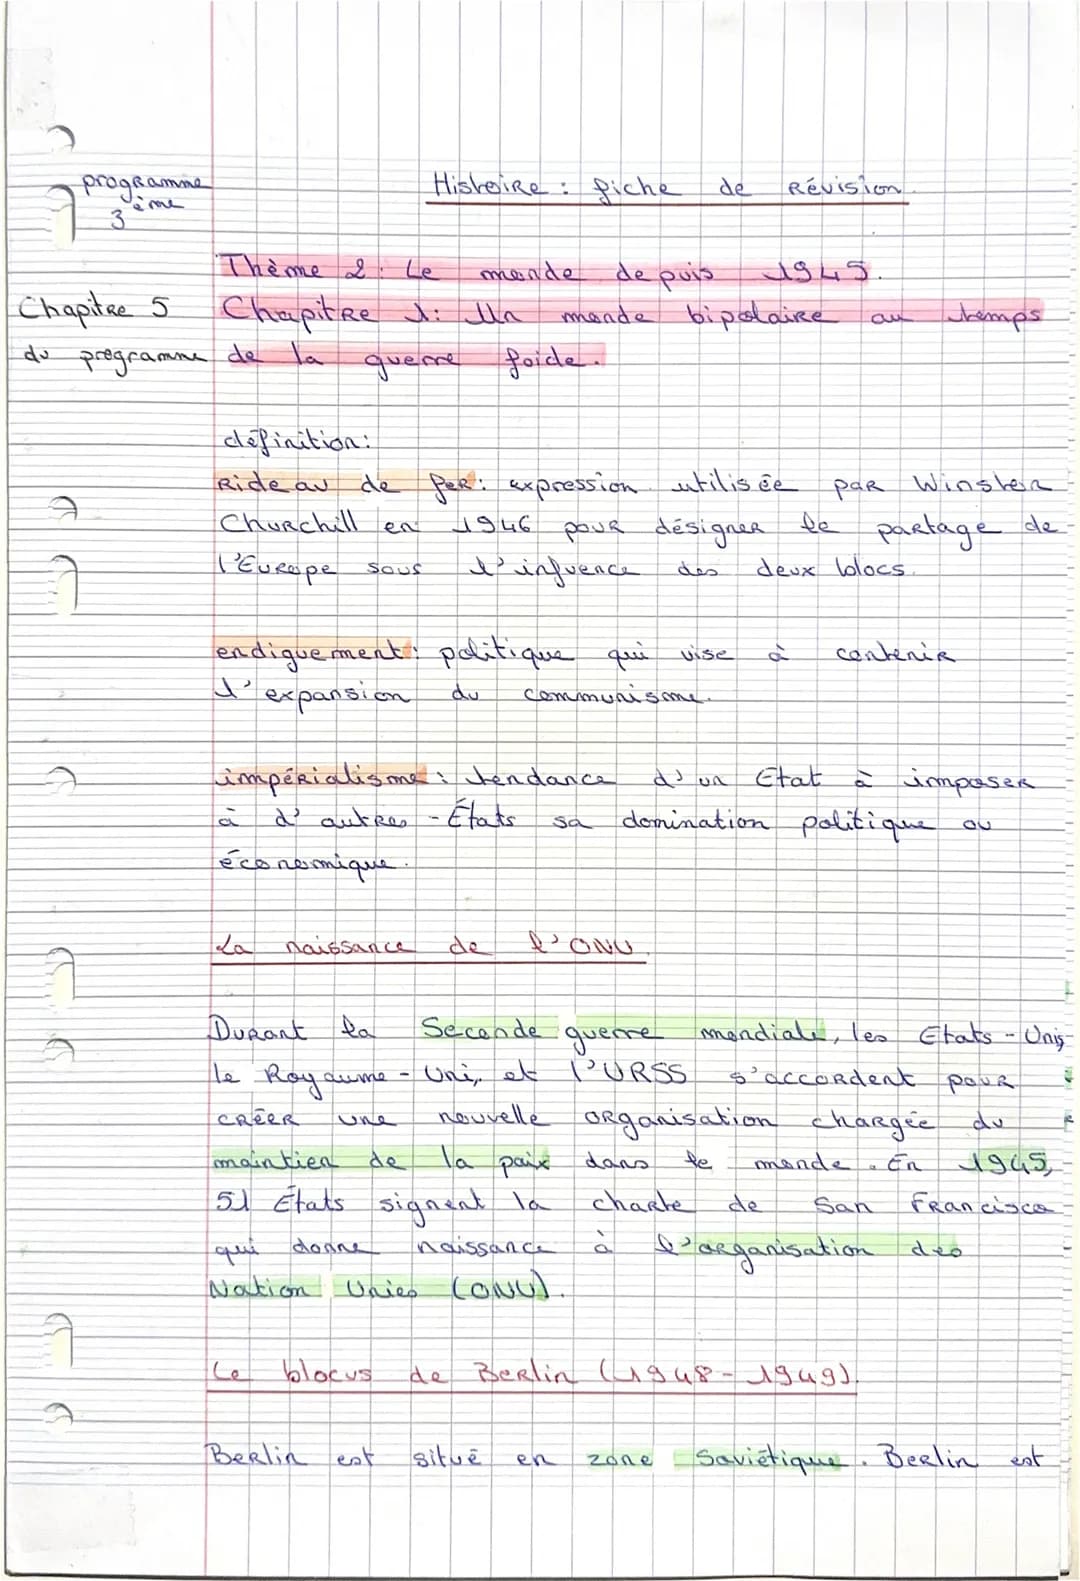 programme
3ème
Histoire : fiche de Révision.
Thème 2 : Le monde depuis 1945.
Chapitre 5
Chapitre 1 : Un monde bipolaire au temps
du programme
de la guerre foide.
définition :
Rideau de fer : expression utilisée par Winston
Churchill en 1946 pour désigner le partage de
l'Europe sous l'infuence des deux blocs.
endiguement : politique qui vise à contenir
l'expansion du communisme.
impérialisme : tendance d'un Etat à imposer
à d'autres - États sa domination politique ou
économique.
La naissance de l'ONU.
Durant la Seconde guerre mondiale, les Etats - Unis
le Royaume - Uni, et l'URSS s'accordent pour
créer une nouvelle organisation chargée du
maintien de la paix dans le monde. En 1945,
51 États signent la charte de San Francisco
qui donne naissance à l'organisation des
Nation Unies (ONU).
Le blocus de Berlin (1948 - 1949).
Berlin est situé en zone Soviétique. Berlin est